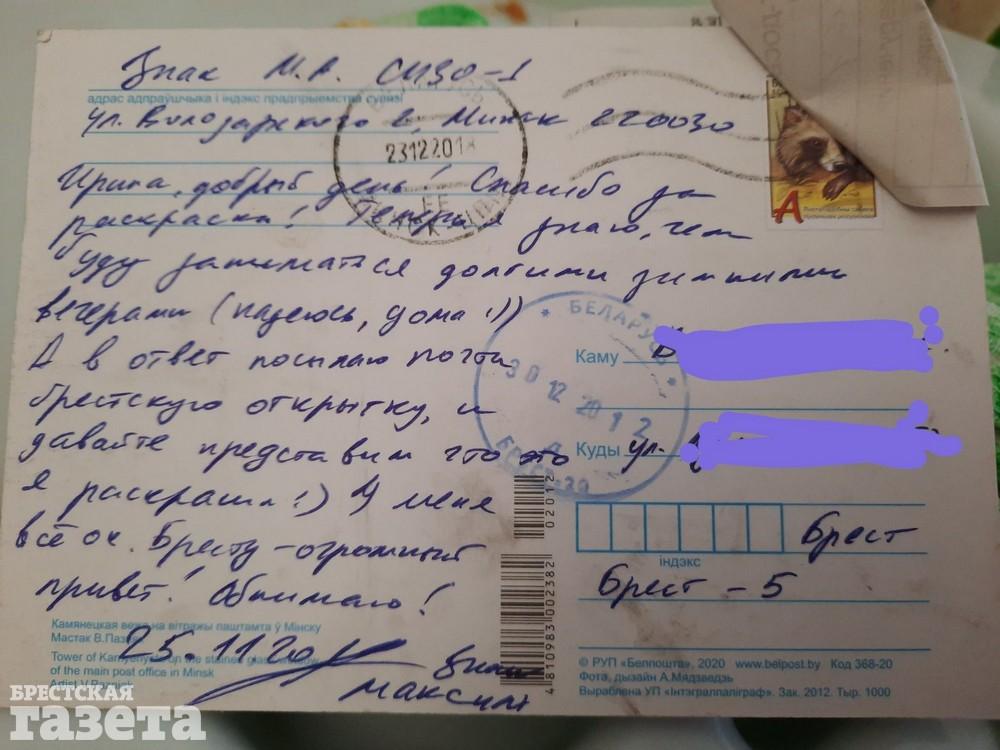 Знак М.А. СИЗО-1
адрас адпраўшчыка і індэкс прадпрыемства сувязі
ул. Володарского 2, Минск 220030
23122018
Ирина, добрый день! Спасибо за
раскраски! Теперь я знаю, чем
буду заниматься долгими зимними
вечерами (надеюсь, дома :))
А в ответ посылаю почти
брестскую открытку, и
давайте представим что это
я раскрашил :) У меня
всё ок. Бресту - огромный
привет! Обнимаю!
25.11.20
Знак
Максим
А
БЕЛАРУСЬ
30 12 20 12
Каму
Куды ул.
індэкс
Брест
Брест - 5
02012
4 810983 002382
Камянецкая вежа на вітражы паштамта ў Мінску
Мастак В.
Tower of Kamyenyets on the stained glass window
of the main post office in Minsk
Artist V.
© РУП «Белпошта», 2020 www.belpost.by Код 368-20
Фота, дызайн А.Мядзведзь
Выраблена УП «Інтэгралпаліграф». Зак. 2012. Тыр. 1000
БРЕСТСКАЯ
газета